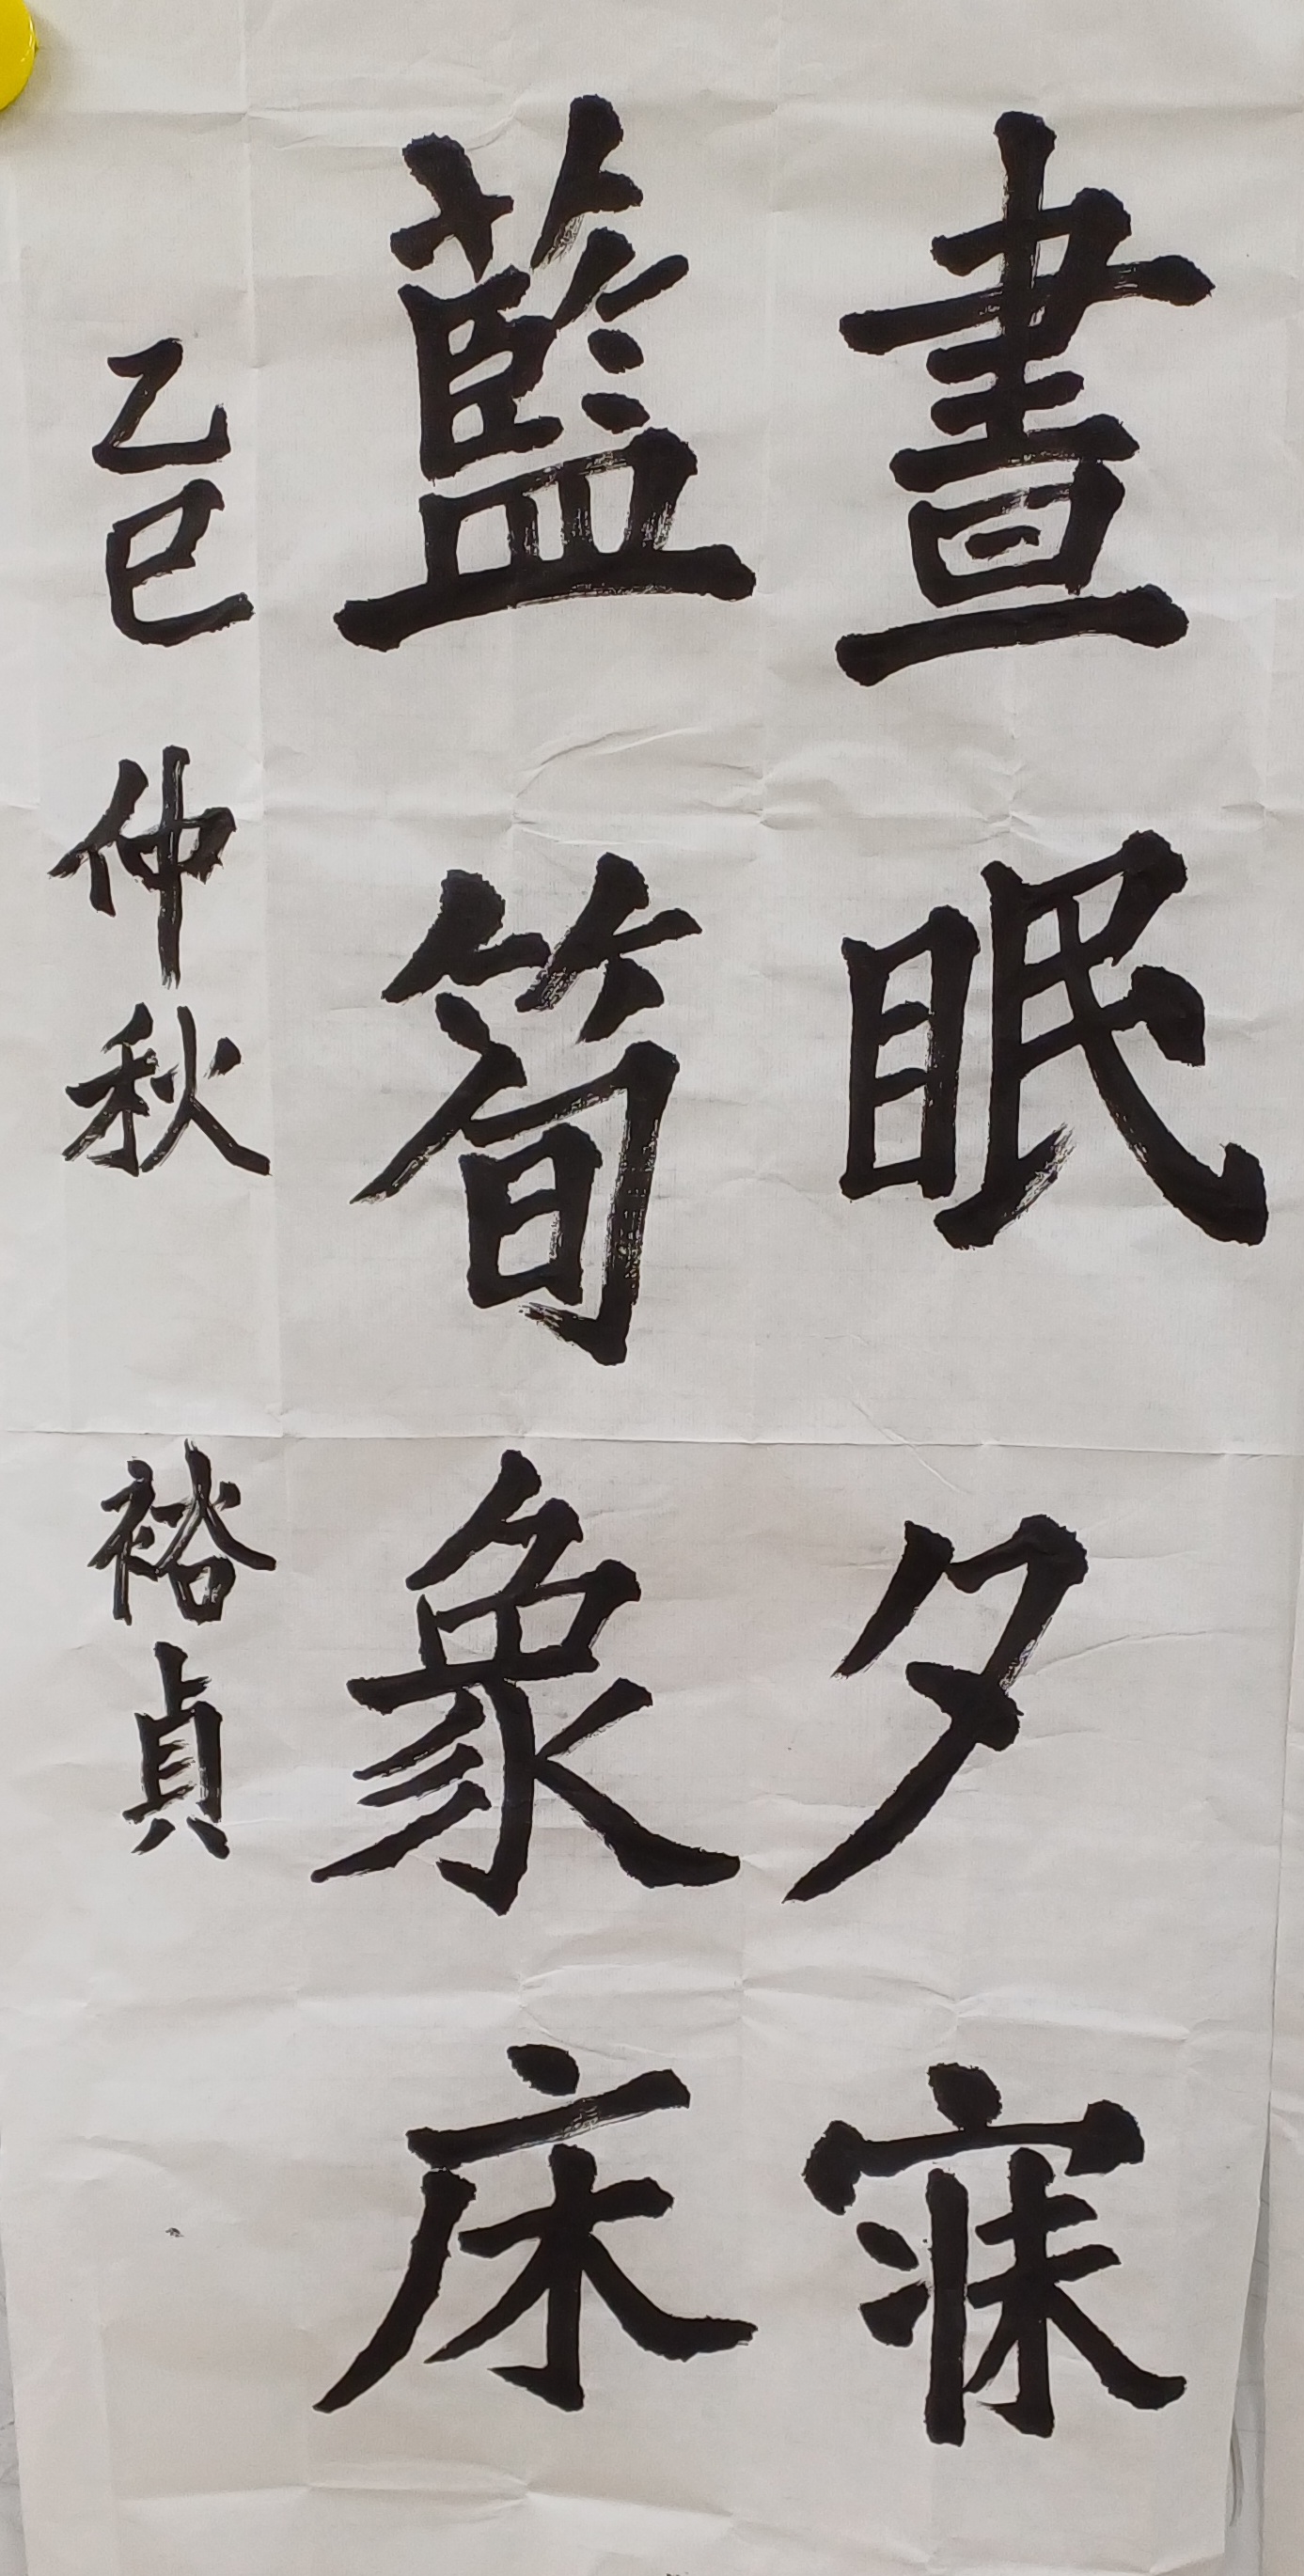 晝眠夕寐
藍筍象床
乙巳仲秋 裕貞